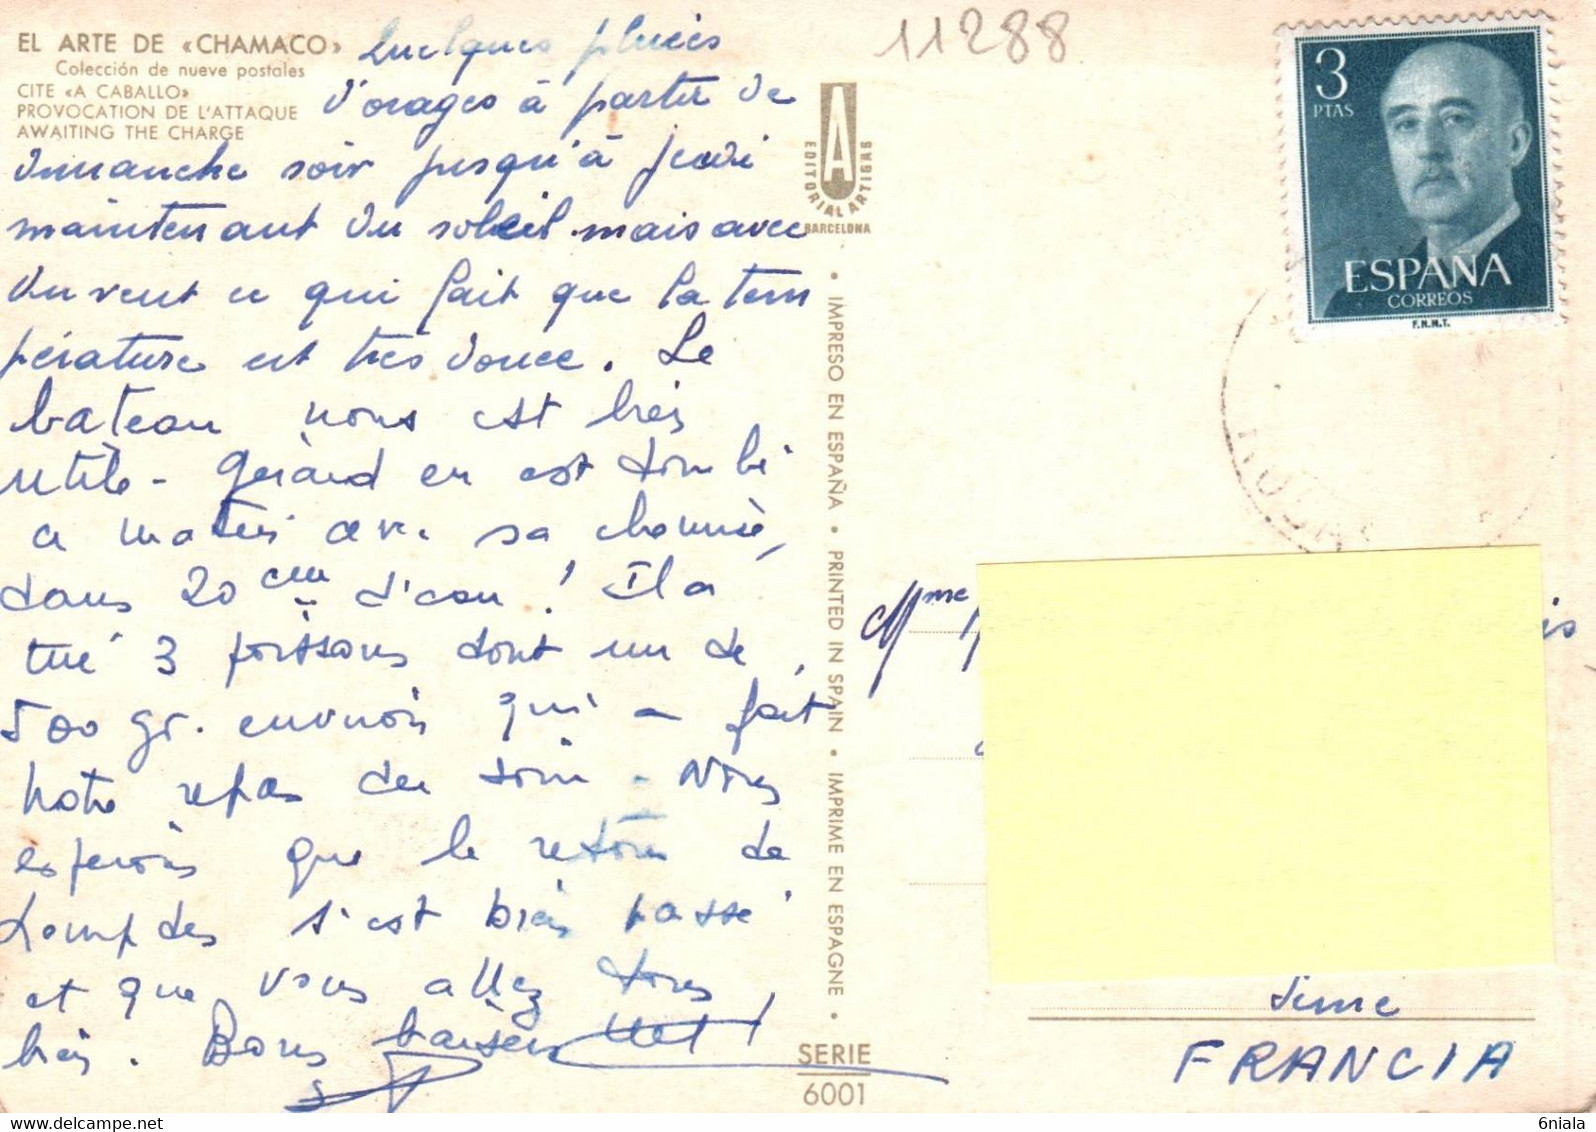 EL ARTE DE «CHAMACO»
Colección de nueve postales
CITE «A CABALLO»
PROVOCATION DE L'ATTAQUE
AWAITING THE CHARGE
Quelques pluies
d'orages à partir de
dimanche soir jusqu'à jeudi
maintenant du soleil mais avec
du vent ce qui fait que la tem
pérature est très douce. Le
bateau nous est très
utile - Gérard en est tombé
ce matin avec sa chemise,
dans 20 cm d'eau ! Il a
tué 3 poissons dont un de
500 gr. environ qui a fait
notre repas du soir - Nous
espérons que le retour de
Lourdes s'est bien passé
et que vous allez tous
bien. Bons baisers
11288
EDITORIAL ARTIGAS
BARCELONA
• IMPRESO EN ESPAÑA • PRINTED IN SPAIN • IMPRIME EN ESPAGNE •
SERIE
6001
3
PTAS
ESPAÑA
CORREOS
F.N.M.T.
Mme
is
FRANCIA
6niala